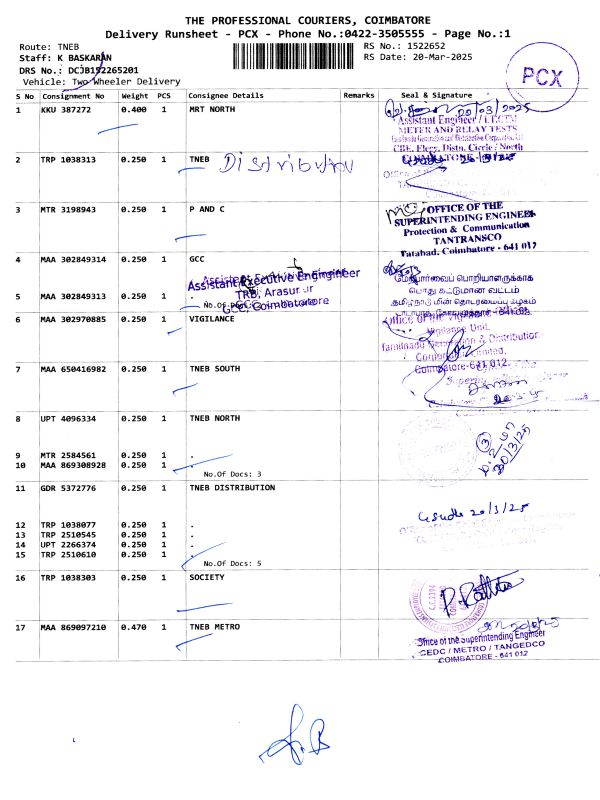 THE PROFESSIONAL COURIERS, COIMBATORE
Delivery Runsheet - PCX - Phone No.:0422-3505555 - Page No.:1
Route: TNEB
RS No.: 1522652
Staff: K BASKARAN
RS Date: 20-Mar-2025
DRS No.: DCJB152265201
Vehicle: Two Wheeler Delivery
PCX
S No Consignment No Weight PCS Consignee Details Remarks Seal & Signature
1 KKU 387272 0.400 1 MRT NORTH
20/03/2025
Assistant Engineer
METER AND RELAY TESTS
CBE. Elecy. Distn. Circle / North
2 TRP 1038313 0.250 1 TNEB Distribution
3 MTR 3198943 0.250 1 P AND C
OFFICE OF THE
SUPERINTENDING ENGINEER
Protection & Communication
TANTRANSCO
Tatabad, Coimbatore - 641 012
4 MAA 302849314 0.250 1 GCC
Assistant Executive Engineer
TRB, Arasur
GCC, Coimbatore
5 MAA 302849313 0.250 1 .
மேற்பார்வைப் பொறியாளருக்காக
பொது கட்டுமான வட்டம்
6 MAA 302970885 0.250 1 VIGILANCE
Office of the
Vigilance Unit,
Tamilnadu Generation & Distribution
Corporation Limited,
Coimbatore-641 012
7 MAA 650416982 0.250 1 TNEB SOUTH
8 UPT 4096334 0.250 1 TNEB NORTH
9 MTR 2584561 0.250 1 .
10 MAA 869308928 0.250 1 .
No.Of Docs: 3
20/3/25
11 GDR 5372776 0.250 1 TNEB DISTRIBUTION
20/3/25
12 TRP 1038077 0.250 1 .
13 TRP 2510545 0.250 1 .
14 UPT 2266374 0.250 1 .
15 TRP 2510610 0.250 1 .
No.Of Docs: 5
16 TRP 1038303 0.250 1 SOCIETY
17 MAA 869097210 0.470 1 TNEB METRO
Office of the Superintending Engineer
CEDC / METRO / TANGEDCO
COIMBATORE - 641 012